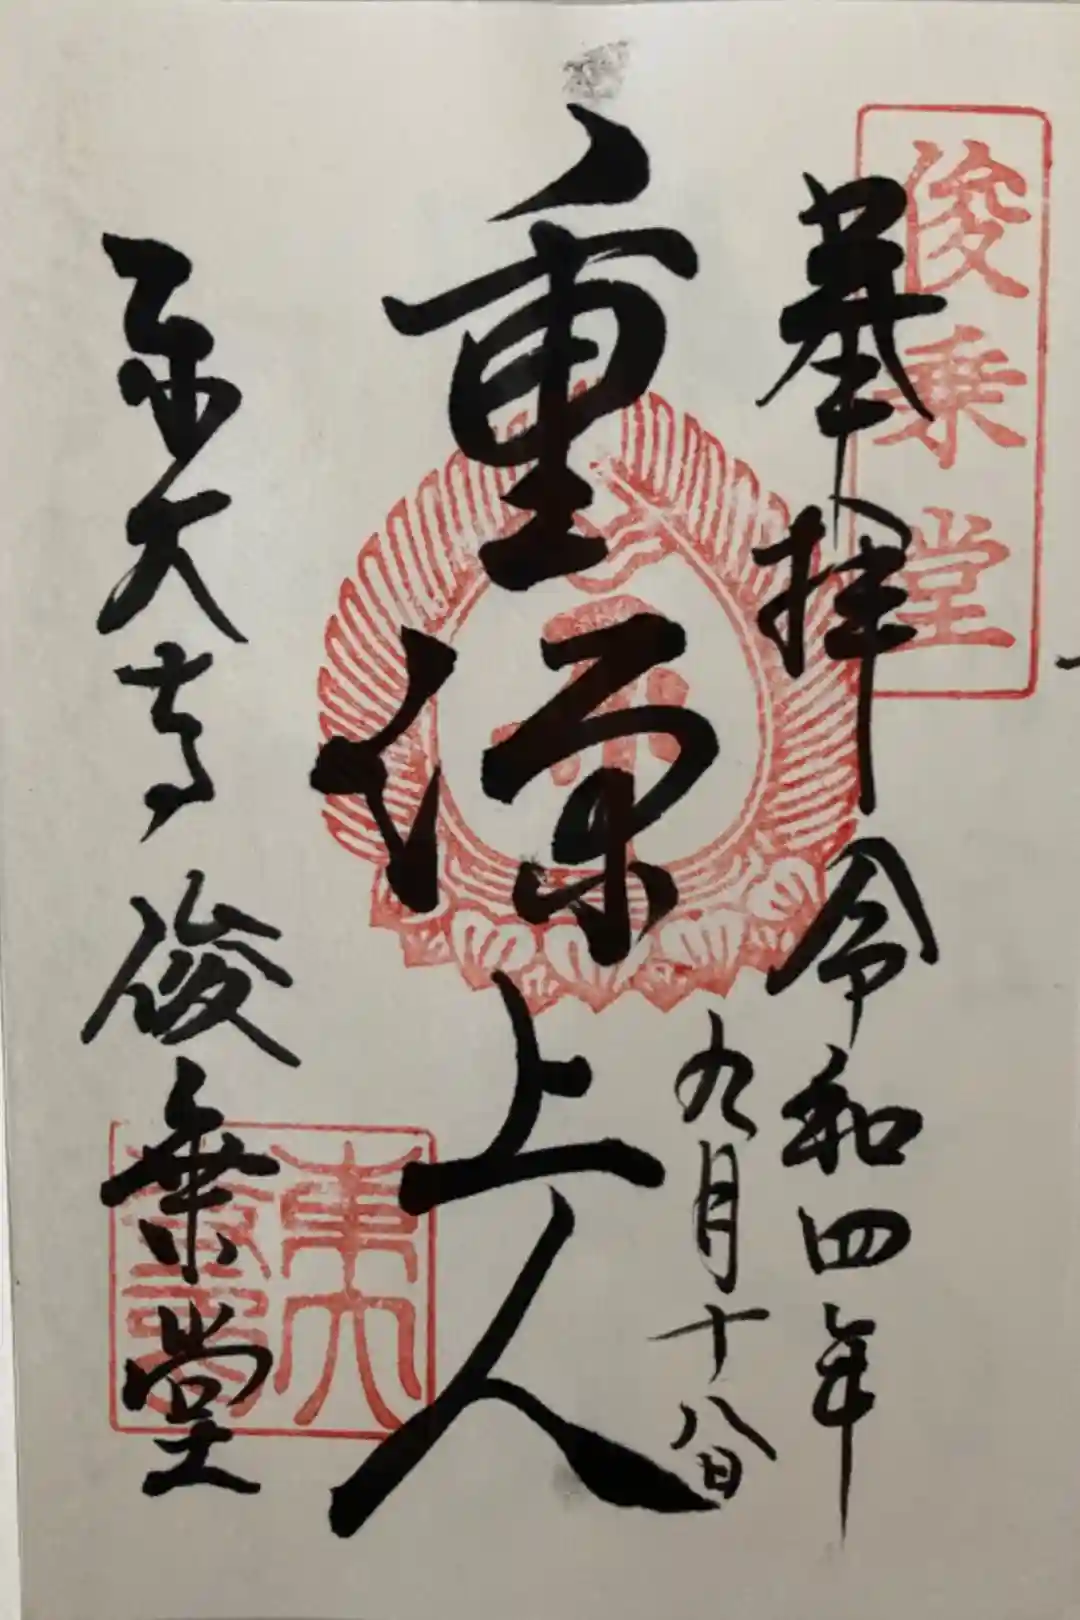 俊乗堂
奉拝 令和四年
九月十八日
重源上人
東大寺 俊乗堂
東大